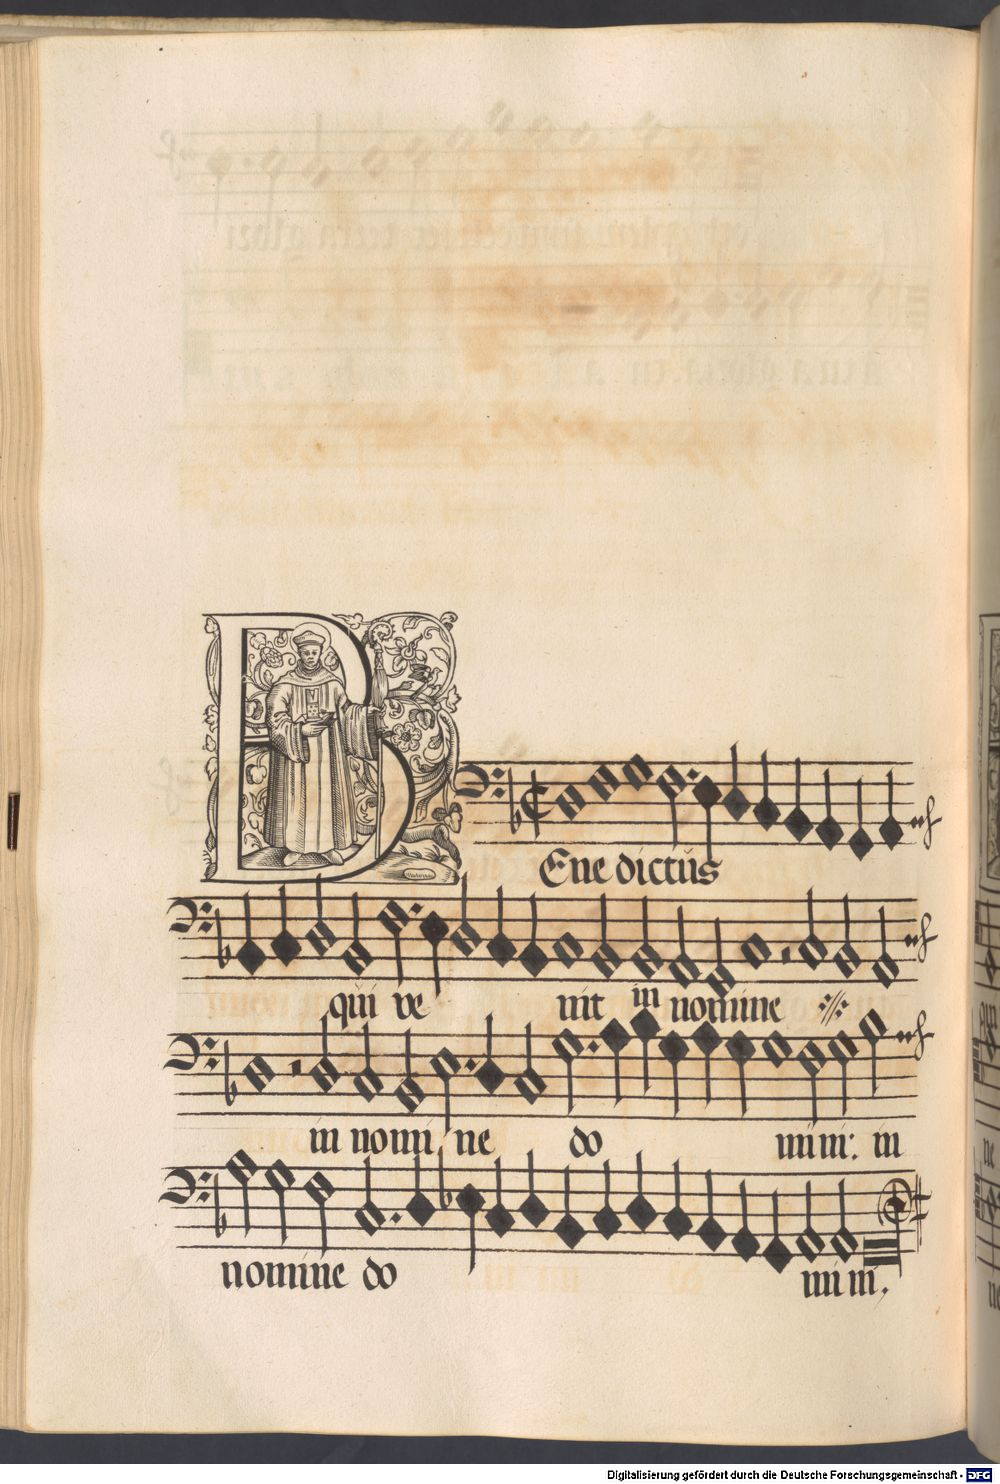 BEne dictus
qui ve nit in nomine
in nomi ne do mini: in
nomine do mini.
Digitalisierung gefördert durch die Deutsche Forschungsgemeinschaft - DFG